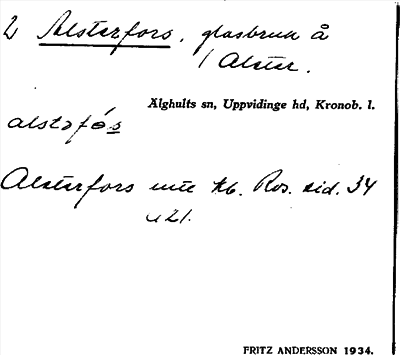 2 Alsterfors, glasbruk å
/ Alster.
Älghults sn, Uppvidinge hd, Kronob. l.
alstəfós
Alsterfors Kb. Ros. sid. 34
u 21.
FRITZ ANDERSSON 1934.